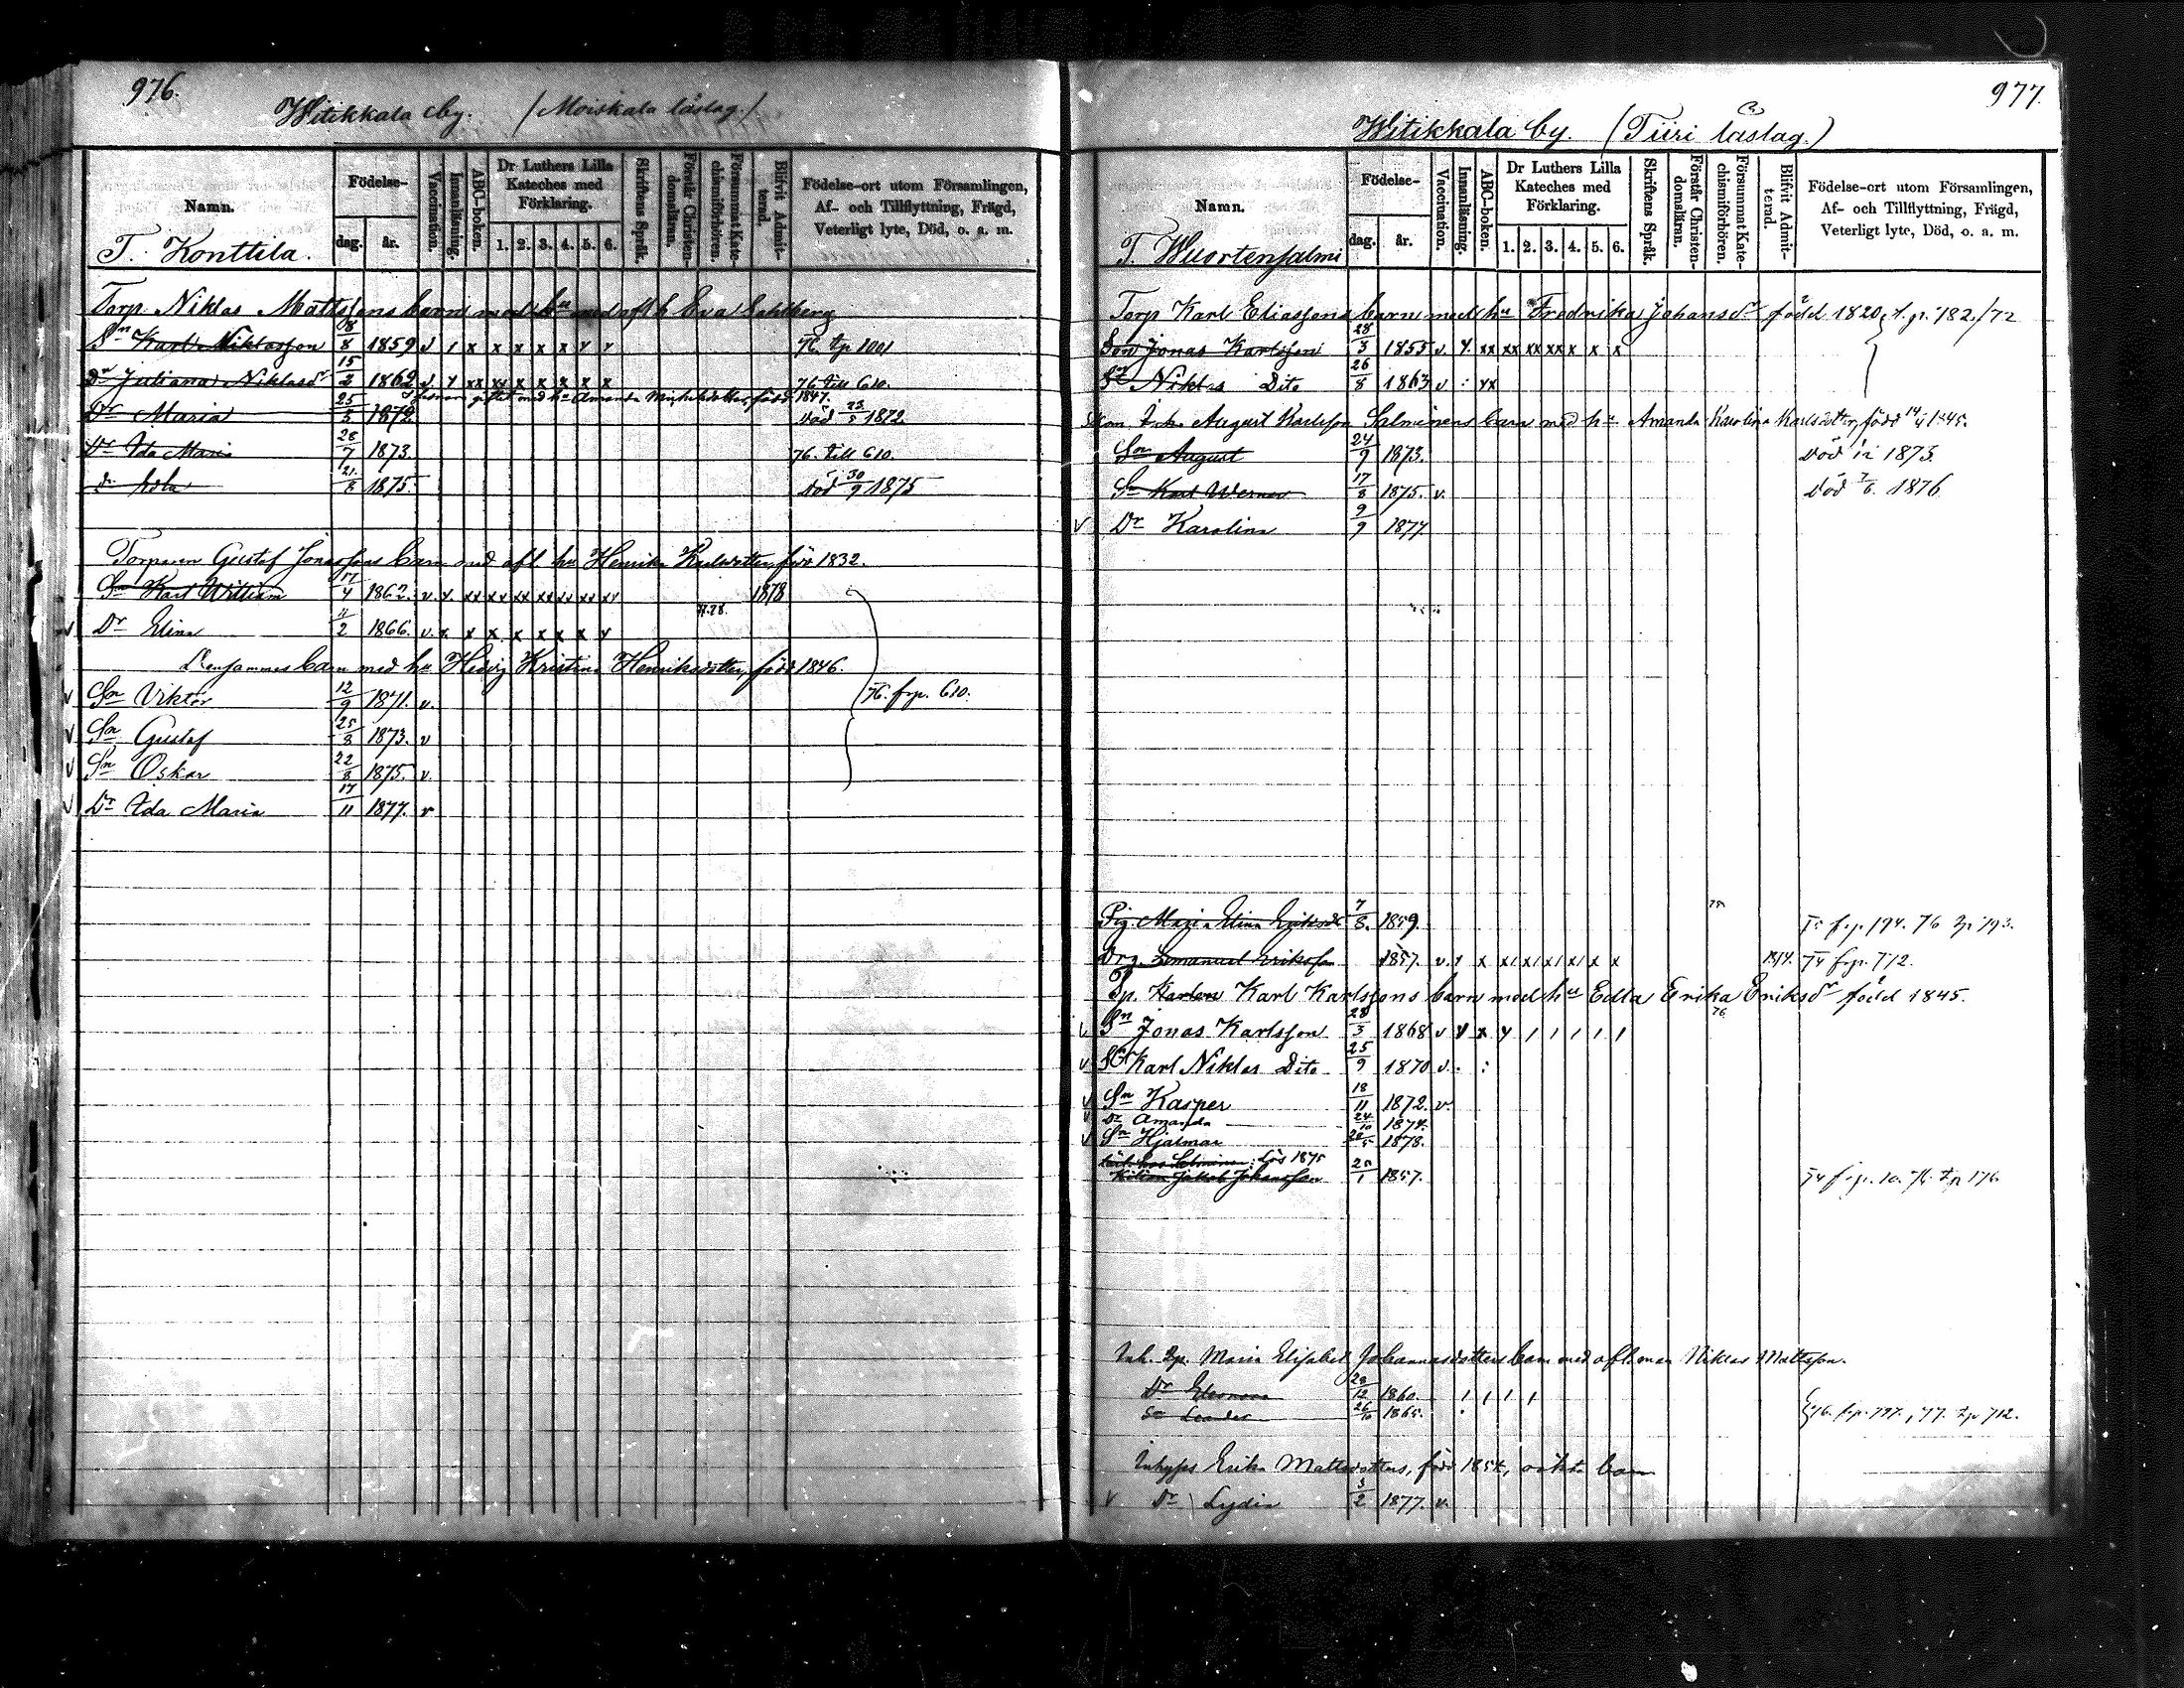 976.
Witikkala by. (Moiskala låslag.)
Namn.
Födelse-
dag. år.
Vaccination.
Innanläsning.
ABC-boken.
Dr Luthers Lilla Kateches med Förklaring.
1. 2. 3. 4. 5. 6.
Skriftens Språk.
Förstår Christendomsläran.
Försummat Katechismiförhören.
Blifvit Admitterad.
Födelse-ort utom Församlingen, Af- och Tillflyttning, Frägd, Veterligt lyte, Död, o. a. m.
T. Konttila.
Torp. Niklas Mattssons barn med hu Eva Sahlberg
Sn Karl Niklasson 18/8 1859 76. tp 1001
Dr Juliana Niklasdr 15/2 1862 v 76. till 610.
giftet med hu Amanda född 1847.
Dr Maria 25/3 1872. död 23/5 1872.
Dr Ida Maria 28/7 1873. 76. till 610.
Dr 21/8 1875. död 30/9 1875
Torparen Gustaf Jonassons barn med afl. hu Henrika Karlsdotter född 1832.
Sn Karl William 17/4 1862. v. x. xx xx xx xx xx xx xx 1878
77.78.
v Dr Elina 11/2 1866. v. x. x x x x x x x
barn med hu Hedvig Kristina Henriksdotter, född 1846.
v Sn Viktor 12/9 1871. v. 76. frp. 610.
v Sn Gustaf 25/8 1873. v
v Sn Oskar 22/8 1875. v.
v Dr Ida Maria 17/11 1877. v
977.
Witikkala by. (Tiiri låslag.)
Namn.
Födelse-
dag. år.
Vaccination.
Innanläsning.
ABC-boken.
Dr Luthers Lilla Kateches med Förklaring.
1. 2. 3. 4. 5. 6.
Skriftens Språk.
Förstår Christendomsläran.
Försummat Katechismiförhören.
Blifvit Admitterad.
Födelse-ort utom Församlingen, Af- och Tillflyttning, Frägd, Veterligt lyte, Död, o. a. m.
T. Wuortensalmi
Torp Karl Eliassons barn med hu Fredrika Johansdr född 1820 t.p. 182/72
Son Jonas Karlsson 28/3 1855 v. x. xx xx xx xx x x x
Sn Niklas Dito 26/8 1863 v : xx
August Karlsson Salminens barn med hu Amanda Karolina Karlsdotter, född 14/4 1845.
Son August 24/9 1873. död 1873.
Sn Karl Werner 17/8 1875. v. död 7/6 1876
v Dr Karolina 9/9 1877
75
Pig. Maria Elina Eriksdr 7/8. 1859. 75 frp. 194. 76 tp 193.
Drg. Emanuel Eriksson 1857. v. 1874. 74 frp. 712.
Tp. Karl Karlssons barn med hu Edla Erika Eriksdr född 1845.
76
v Sn Jonas Karlsson 28/3 1868 v
v Sn Karl Niklas Dito 25/9 1870 v. . :
v Sn Kasper 18/11 1872. v.
v Dr Amanda 24/10 1874.
v Sn Hjalmar 20/5 1878.
Salminen: lös 1875
Jakob Johansson 25/1 1857. 74 frp. 10. 76. tp 176.
Inh. Maria Elisabet Johannasdotters barn med afl. man Niklas Mattsson.
Dr Eleonora 28/12 1860
Sn Leander 26/10 1865. 76. frp. 797., 77. tp 712.
Inhyss Erika Mattsdotters, född 1854, oäkta barn
v Dr Lydia 3/2 1877. v.